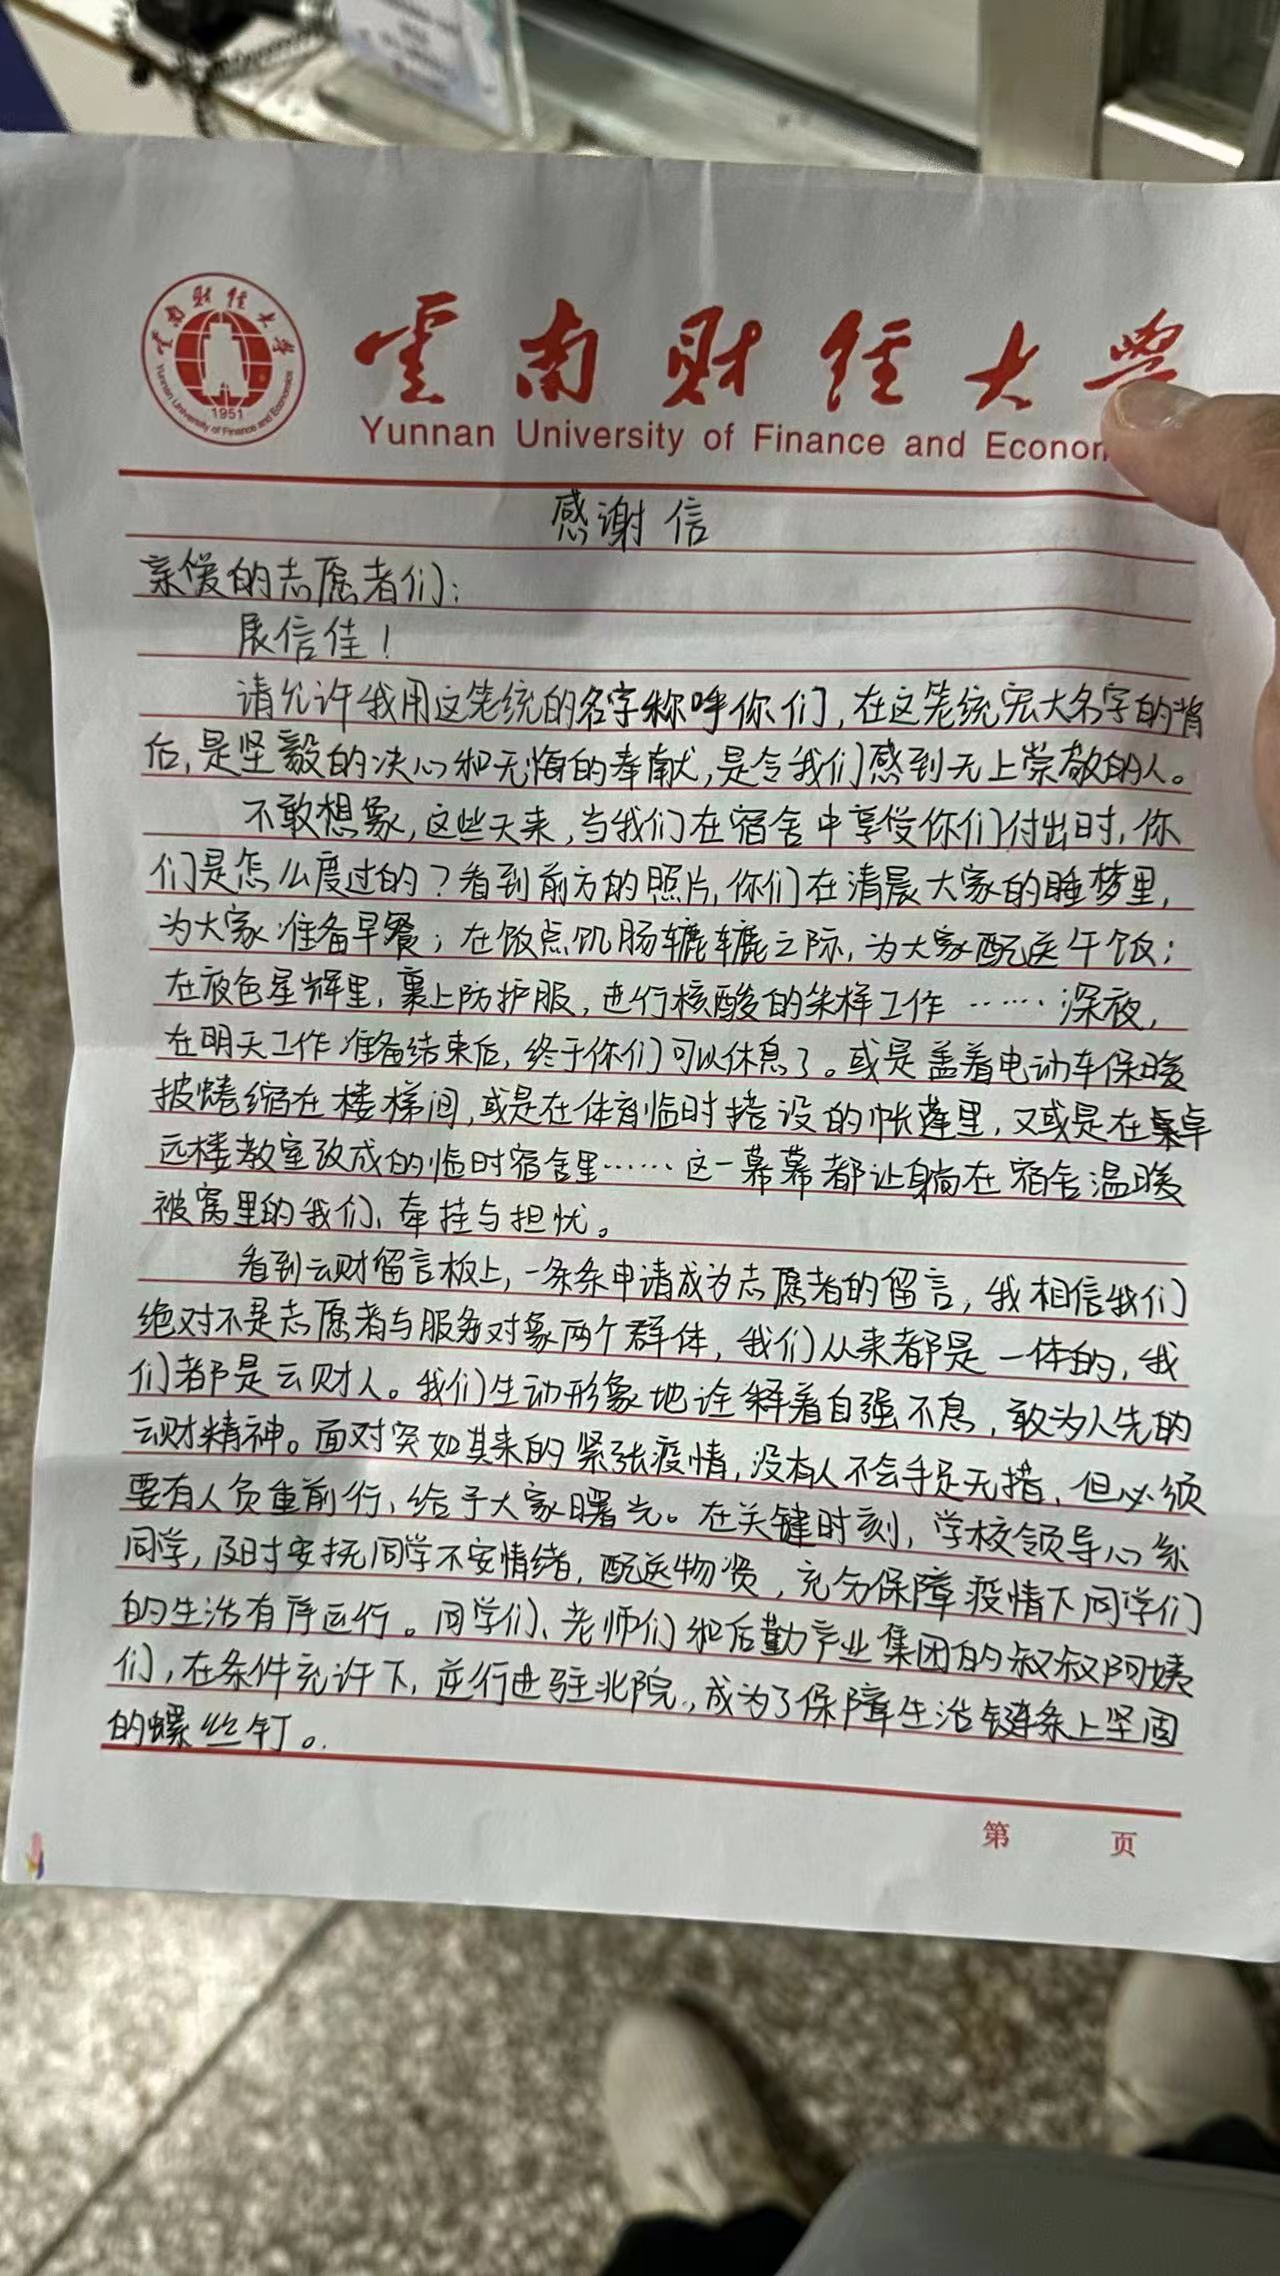 云南财经大学
Yunnan University of Finance and Econom
云南财经大学
Yunnan University of Finance and Economics
1951
感谢信
亲爱的志愿者们：
展信佳！
请允许我用这笼统的名字称呼你们，在这笼统宏大名字的背
后，是坚毅的决心和无悔的奉献，是令我们感到无上崇敬的人。
不敢想象，这些天来，当我们在宿舍中享受你们付出时，你
们是怎么度过的？看到前方的照片，你们在清晨大家的睡梦里，
为大家准备早餐；在饭点饥肠辘辘之际，为大家配送午饭；
在夜色星辉里，裹上防护服，进行核酸的采样工作……深夜，
在明天工作准备结束后，终于你们可以休息了。或是盖着电动车保暖
披蜷缩在楼梯间，或是在体育临时搭设的帐蓬里，又或是在卓
远楼教室改成的临时宿舍里……这一幕幕都让身躺在宿舍温暖
被窝里的我们，牵挂与担忧。
看到云财留言板上，一条条申请成为志愿者的留言，我相信我们
绝对不是志愿者与服务对象两个群体，我们从来都是一体的，我
们都是云财人。我们生动形象地诠释着自强不息，敢为人先的
云财精神。面对突如其来的紧张疫情，没有人不会手足无措，但必须
要有人负重前行，给予大家曙光。在关键时刻，学校领导心系
同学，及时安抚同学不安情绪，配送物资，充分保障疫情下同学们
的生活有序运行。同学们、老师们和后勤产业集团的叔叔阿姨
们，在条件允许下，逆行进驻北院，成为了保障生活链条上坚固
的螺丝钉。
第 页